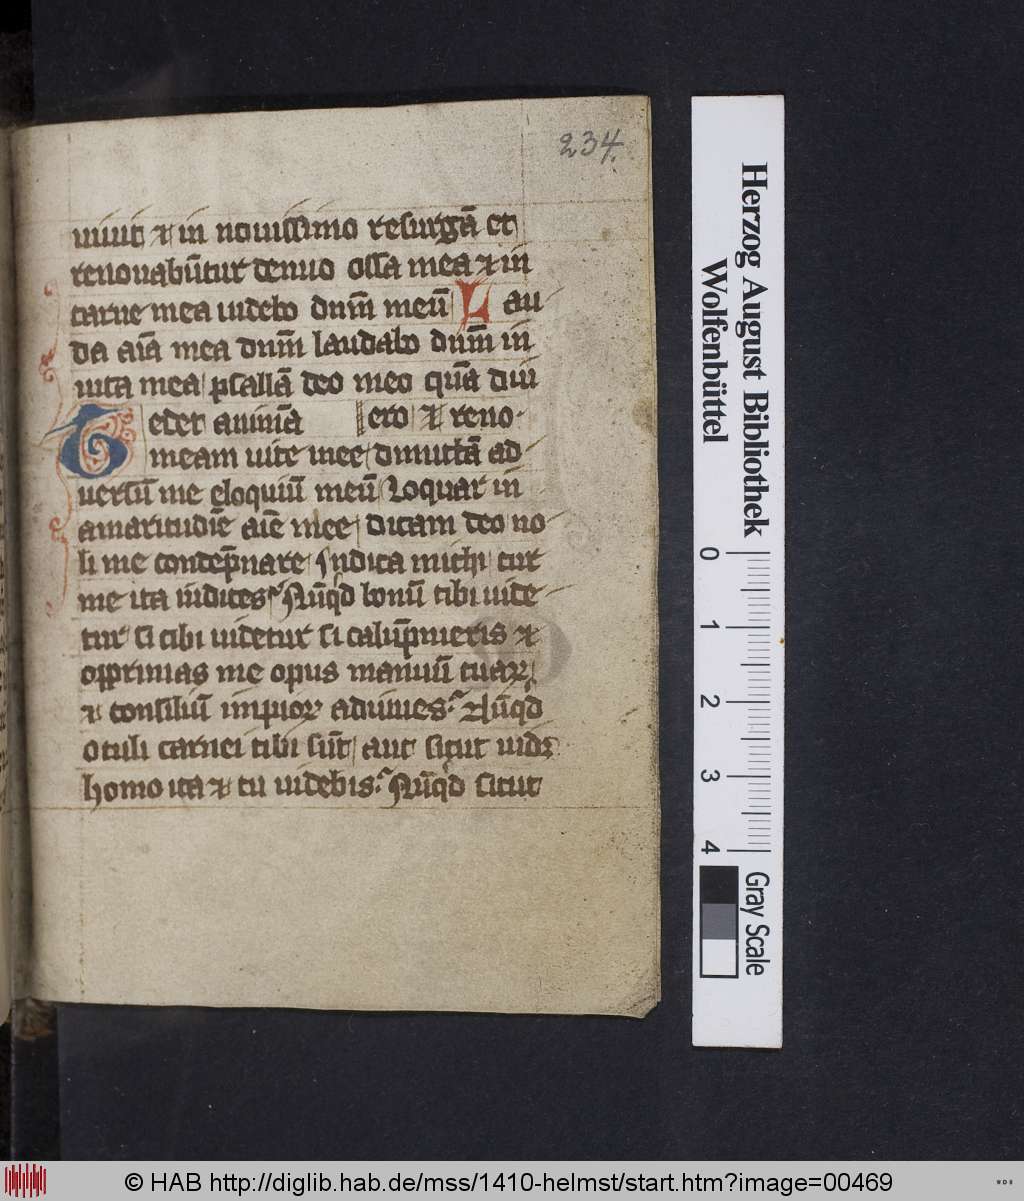 234.
uiuit et in nouissimo resurgā et
renouabūtur denuo ossa mea et in
carne mea uidebo dn̄m meū Lau
da aīa mea dn̄m laudabo dn̄m in
uita mea psallā deo meo quā diu
Tedet animā ero et reno
meam uite mee dimittā ad
uersū me eloquiū meū Loquar in
amaritudīe aīe mee dicam deo no
li me condēpnare Indica michi cur
me ita iudices Nūqd bonū tibi uide
tur si tibi uidetur si calūpnieris et
opprimas me opus manuū tuaꝝ
et consiliū impioꝝ adiuues Nūqd
oculi carnei tibi sūt aut sicut uidꝫ
homo ita et tu uidebis Nūqd sicut
Herzog August Bibliothek
Wolfenbüttel
0 1 2 3 4
Gray Scale
© HAB http://diglib.hab.de/mss/1410-helmst/start.htm?image=00469